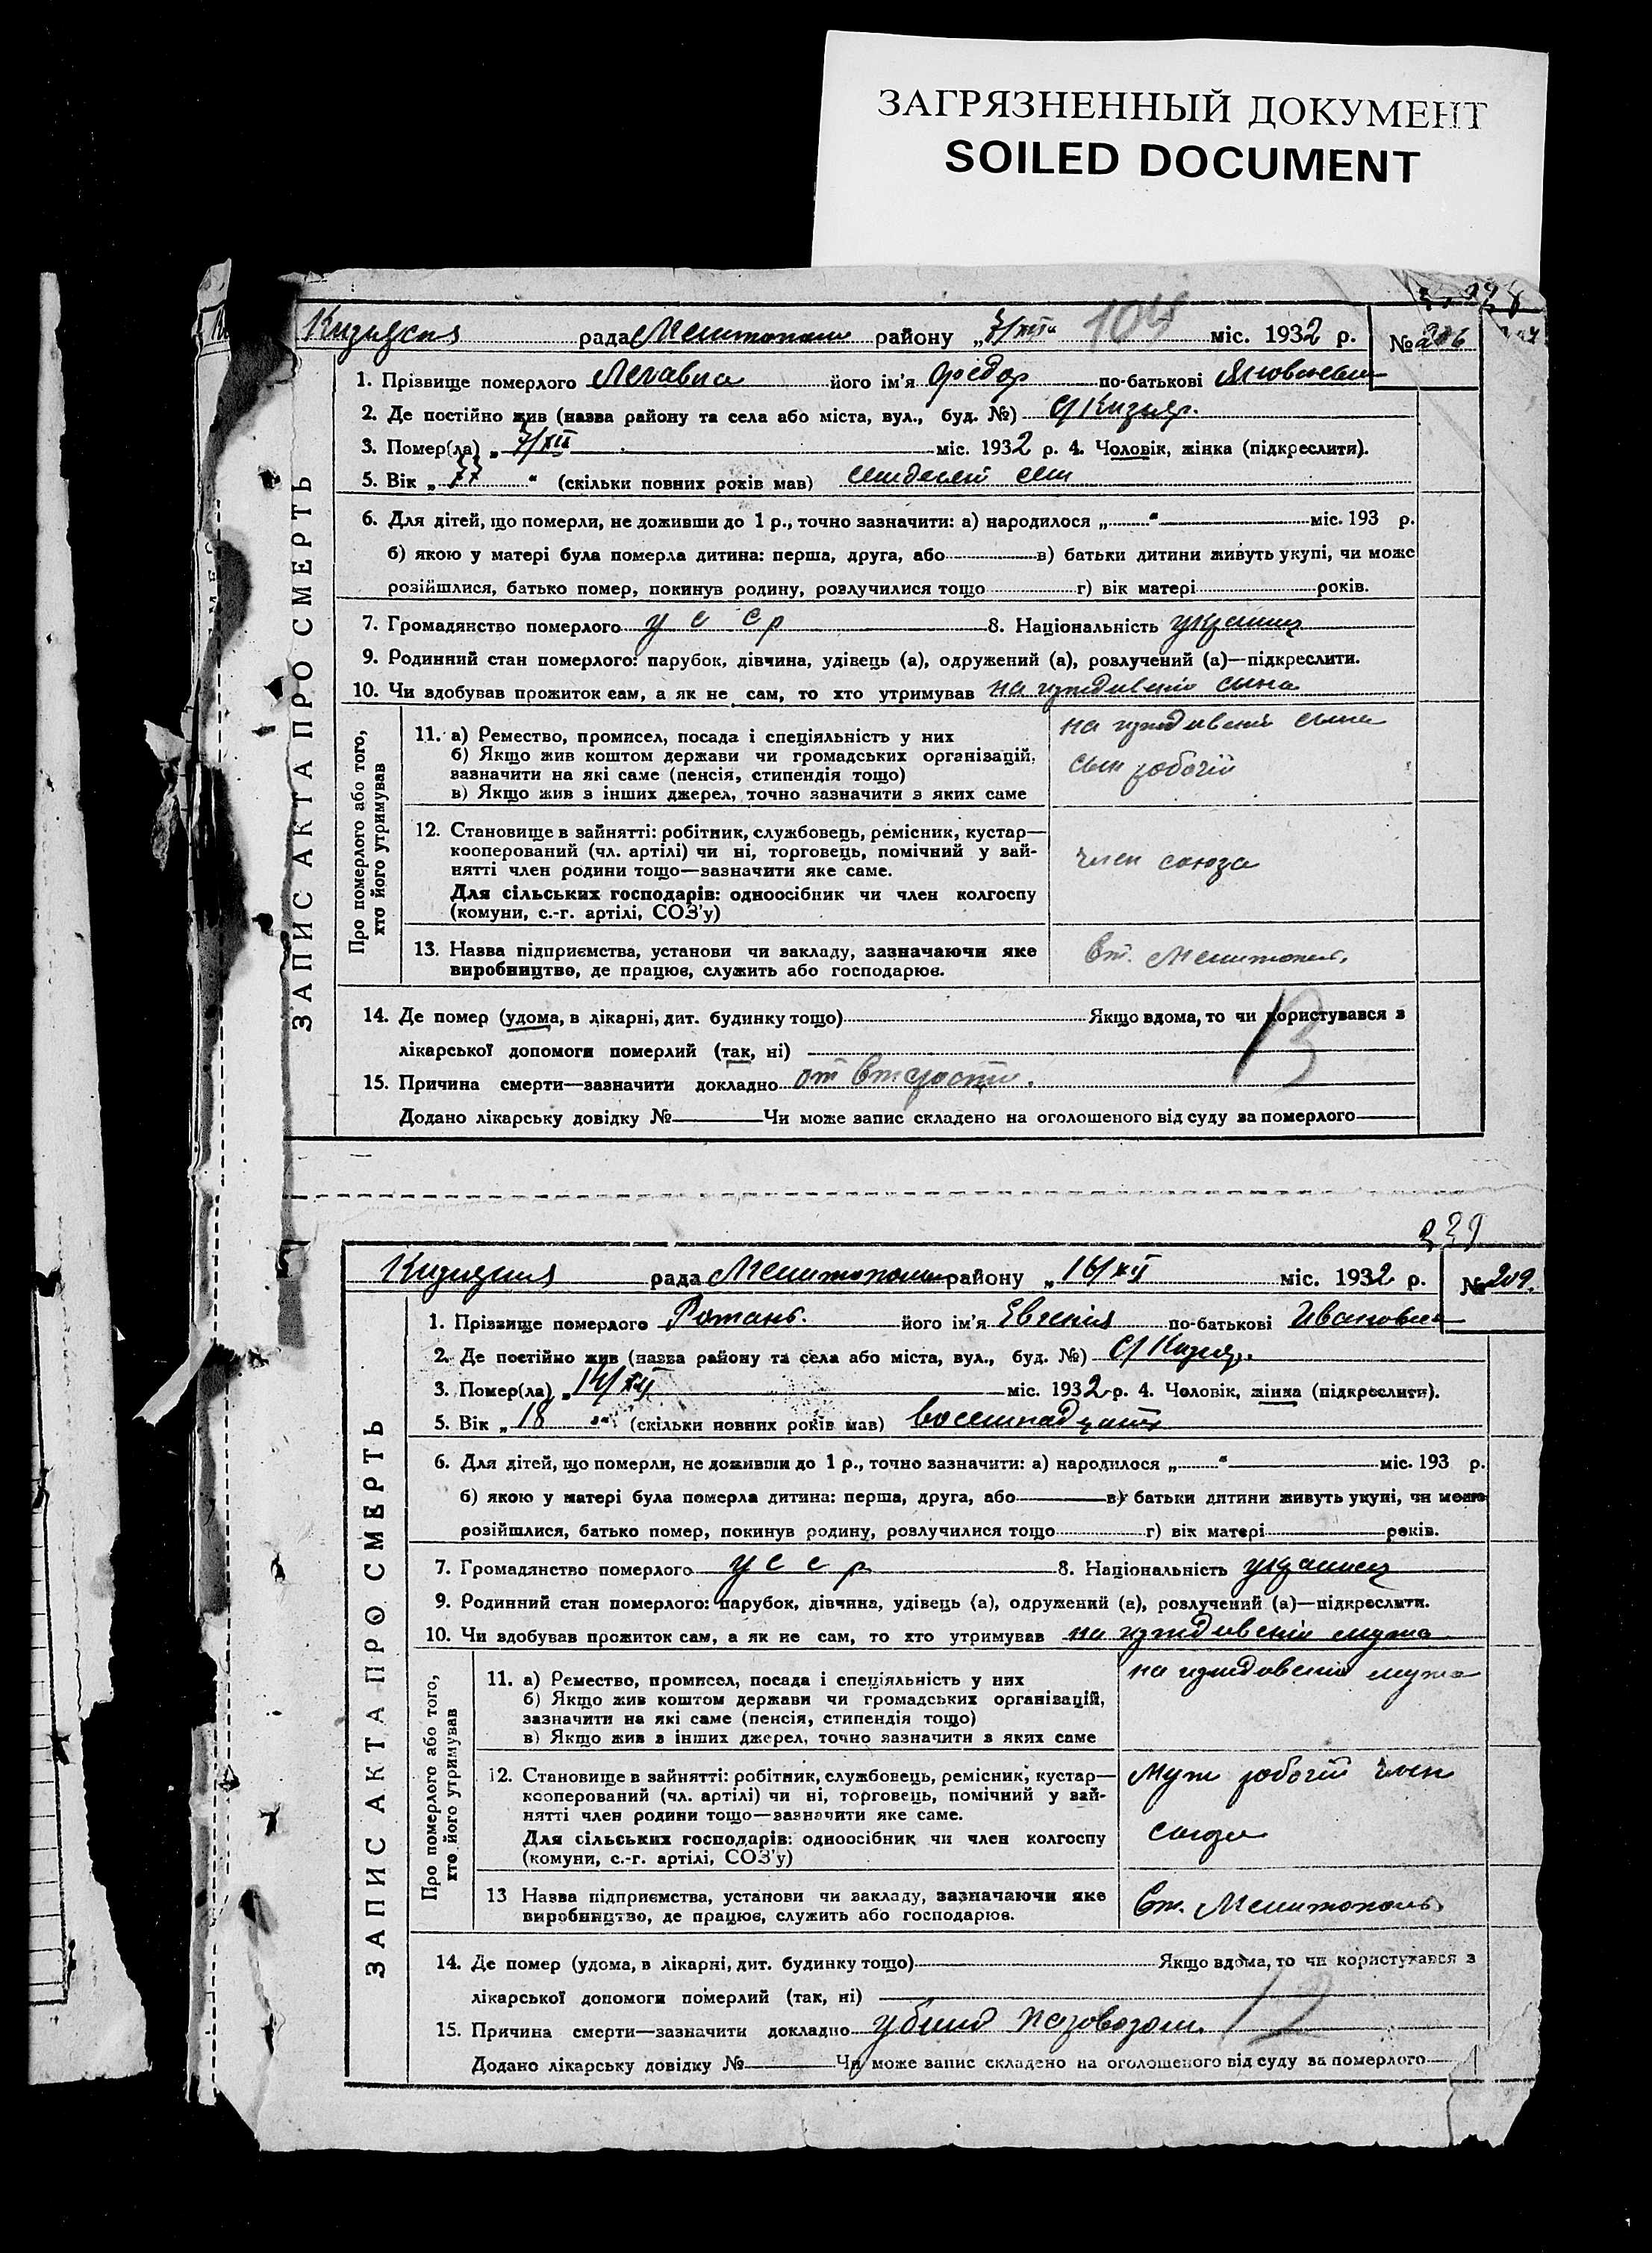 ЗАГРЯЗНЕННЫЙ ДОКУМЕНТ
SOILED DOCUMENT
ЗАПИС АКТА ПРО СМЕРТЬ
рада району „ міс. 1932 р. №
1. Прізвище померлого його ім'я Федор по-батькові
2. Де постійно жив (назва району та села або міста, вул., буд. №)
3. Помер(ла) „ 7/XII міс. 1932 р. 4. Чоловік, жінка (підкреслити).
5. Вік „ “ (скільки повних років мав)
6. Для дітей, що померли, не доживши до 1 р., точно зазначити: а) народилося „ “ міс. 193 р.
б) якою у матері була померла дитина: перша, друга, або в) батьки дитини живуть укупі, чи може
розійшлися, батько помер, покинув родину, розлучилися тощо г) вік матері років.
7. Громадянство померлого У С С Р 8. Національність украинец
9. Родинний стан померлого: парубок, дівчина, удівець (а), одружений (а), розлучений (а)—підкреслити.
10. Чи здобував прожиток сам, а як не сам, то хто утримував на сына
Про померлого або того,
хто його утримував
11. а) Ремество, промисел, посада і спеціяльність у них
б) Якщо жив коштом держави чи громадських організацій,
зазначити на які саме (пенсія, стипендія тощо)
в) Якщо жив з інших джерел, точно зазначити з яких саме
на сына
сын робочій
12. Становище в зайнятті: робітник, службовець, ремісник, кустар—
кооперований (чл. артілі) чи ні, торговець, помічний у зай-
нятті член родини тощо—зазначити яке саме.
Для сільських господарів: одноосібник чи член колгоспу
(комуни, с.-г. артілі, СОЗ'у)
член союза
13. Назва підприємства, установи чи закладу, зазначаючи яке
виробництво, де працює, служить або господарює.
Ст. Мелитополь
14. Де помер (удома, в лікарні, дит. будинку тощо) Якщо вдома, то чи користувався з
лікарської допомоги померлий (так, ні)
13
15. Причина смерти—зазначити докладно от старости.
Додано лікарську довідку № Чи може запис складено на оголошеного від суду за померлого
239
ЗАПИС АКТА ПРО СМЕРТЬ
рада району „ 16/XII міс. 1932 р. № 209.
1. Прізвище померлого Ротань. його ім'я Евгенія по-батькові
2. Де постійно жив (назва району та села або міста, вул., буд. №)
3. Помер(ла) „ 14/XII міс. 1932 р. 4. Чоловік, жінка (підкреслити).
5. Вік „ 18 “ (скільки повних років мав) восемнадцать
6. Для дітей, що померли, не доживши до 1 р., точно зазначити: а) народилося „ “ міс. 193 р.
б) якою у матері була померла дитина: перша, друга, або в) батьки дитини живуть укупі, чи може
розійшлися, батько помер, покинув родину, розлучилися тощо г) вік матері років.
7. Громадянство померлого У С С Р 8. Національність украинец
9. Родинний стан померлого: парубок, дівчина, удівець (а), одружений (а), розлучений (а)—підкреслити.
10. Чи здобував прожиток сам, а як не сам, то хто утримував на мужа
Про померлого або того,
хто його утримував
11. а) Ремество, промисел, посада і спеціяльність у них
б) Якщо жив коштом держави чи громадських організацій,
зазначити на які саме (пенсія, стипендія тощо)
в) Якщо жив з інших джерел, точно зазначити з яких саме
на мужа
12. Становище в зайнятті: робітник, службовець, ремісник, кустар—
кооперований (чл. артілі) чи ні, торговець, помічний у зай-
нятті член родини тощо—зазначити яке саме.
Для сільських господарів: одноосібник чи член колгоспу
(комуни, с.-г. артілі, СОЗ'у)
Муж робочій член
союза
13 Назва підприємства, установи чи закладу, зазначаючи яке
виробництво, де працює, служить або господарює.
Ст. Мелитополь
14. Де помер (удома, в лікарні, дит. будинку тощо) Якщо вдома, то чи користувався з
лікарської допомоги померлий (так, ні)
12
15. Причина смерти—зазначити докладно паровозом.
Додано лікарську довідку № Чи може запис складено на оголошеного від суду за померлого